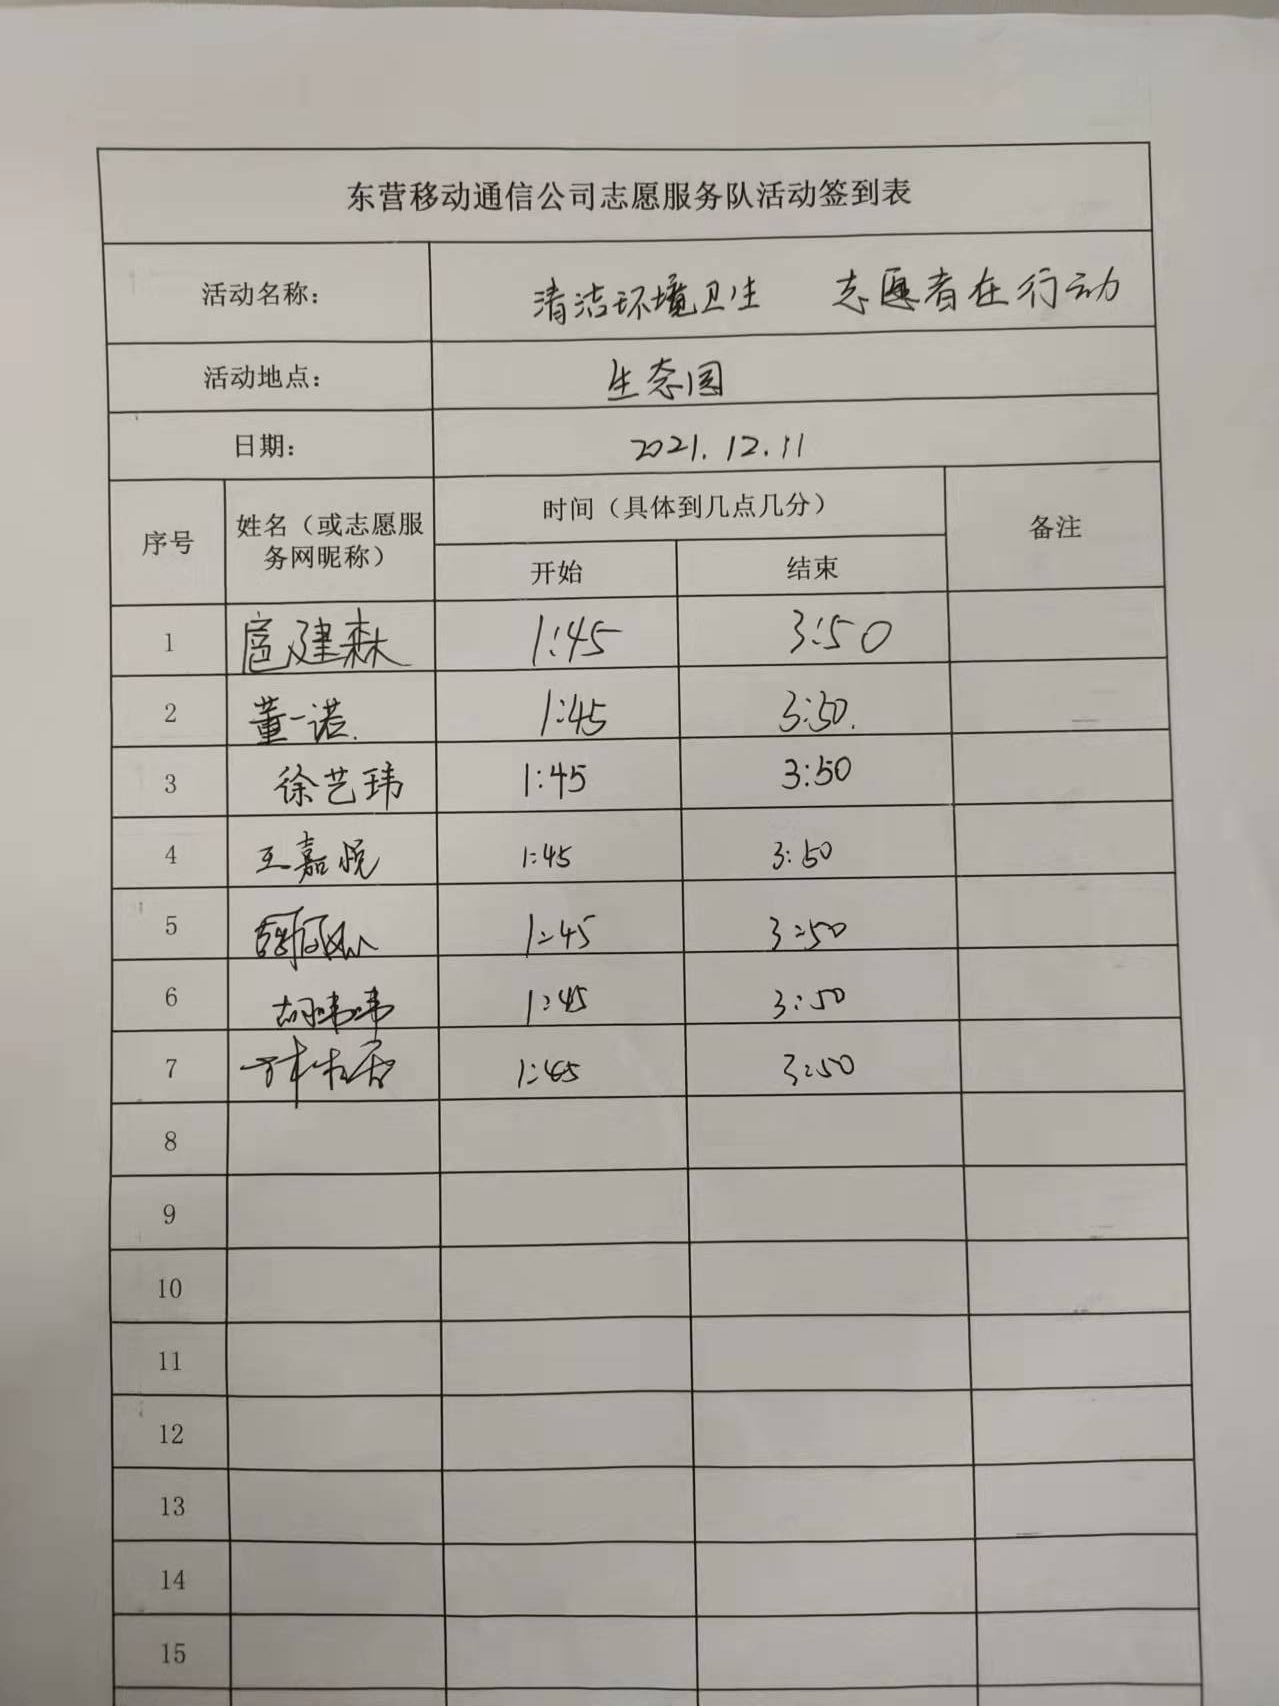 东营移动通信公司志愿服务队活动签到表
活动名称： 清洁环境卫生 志愿者在行动
活动地点： 生态园
日期： 2021.12.11
序号 姓名（或志愿服务网昵称） 时间（具体到几点几分） 备注
开始 结束
1 扈建森 1:45 3:50
2 董一诺. 1:45 3:50.
3 徐艺玮 1:45 3:50
4 王嘉悦 1:45 3:50
5 1:45 3:50
6 胡玮玮 1:45 3:50
7 1:45 3:50
8
9
10
11
12
13
14
15